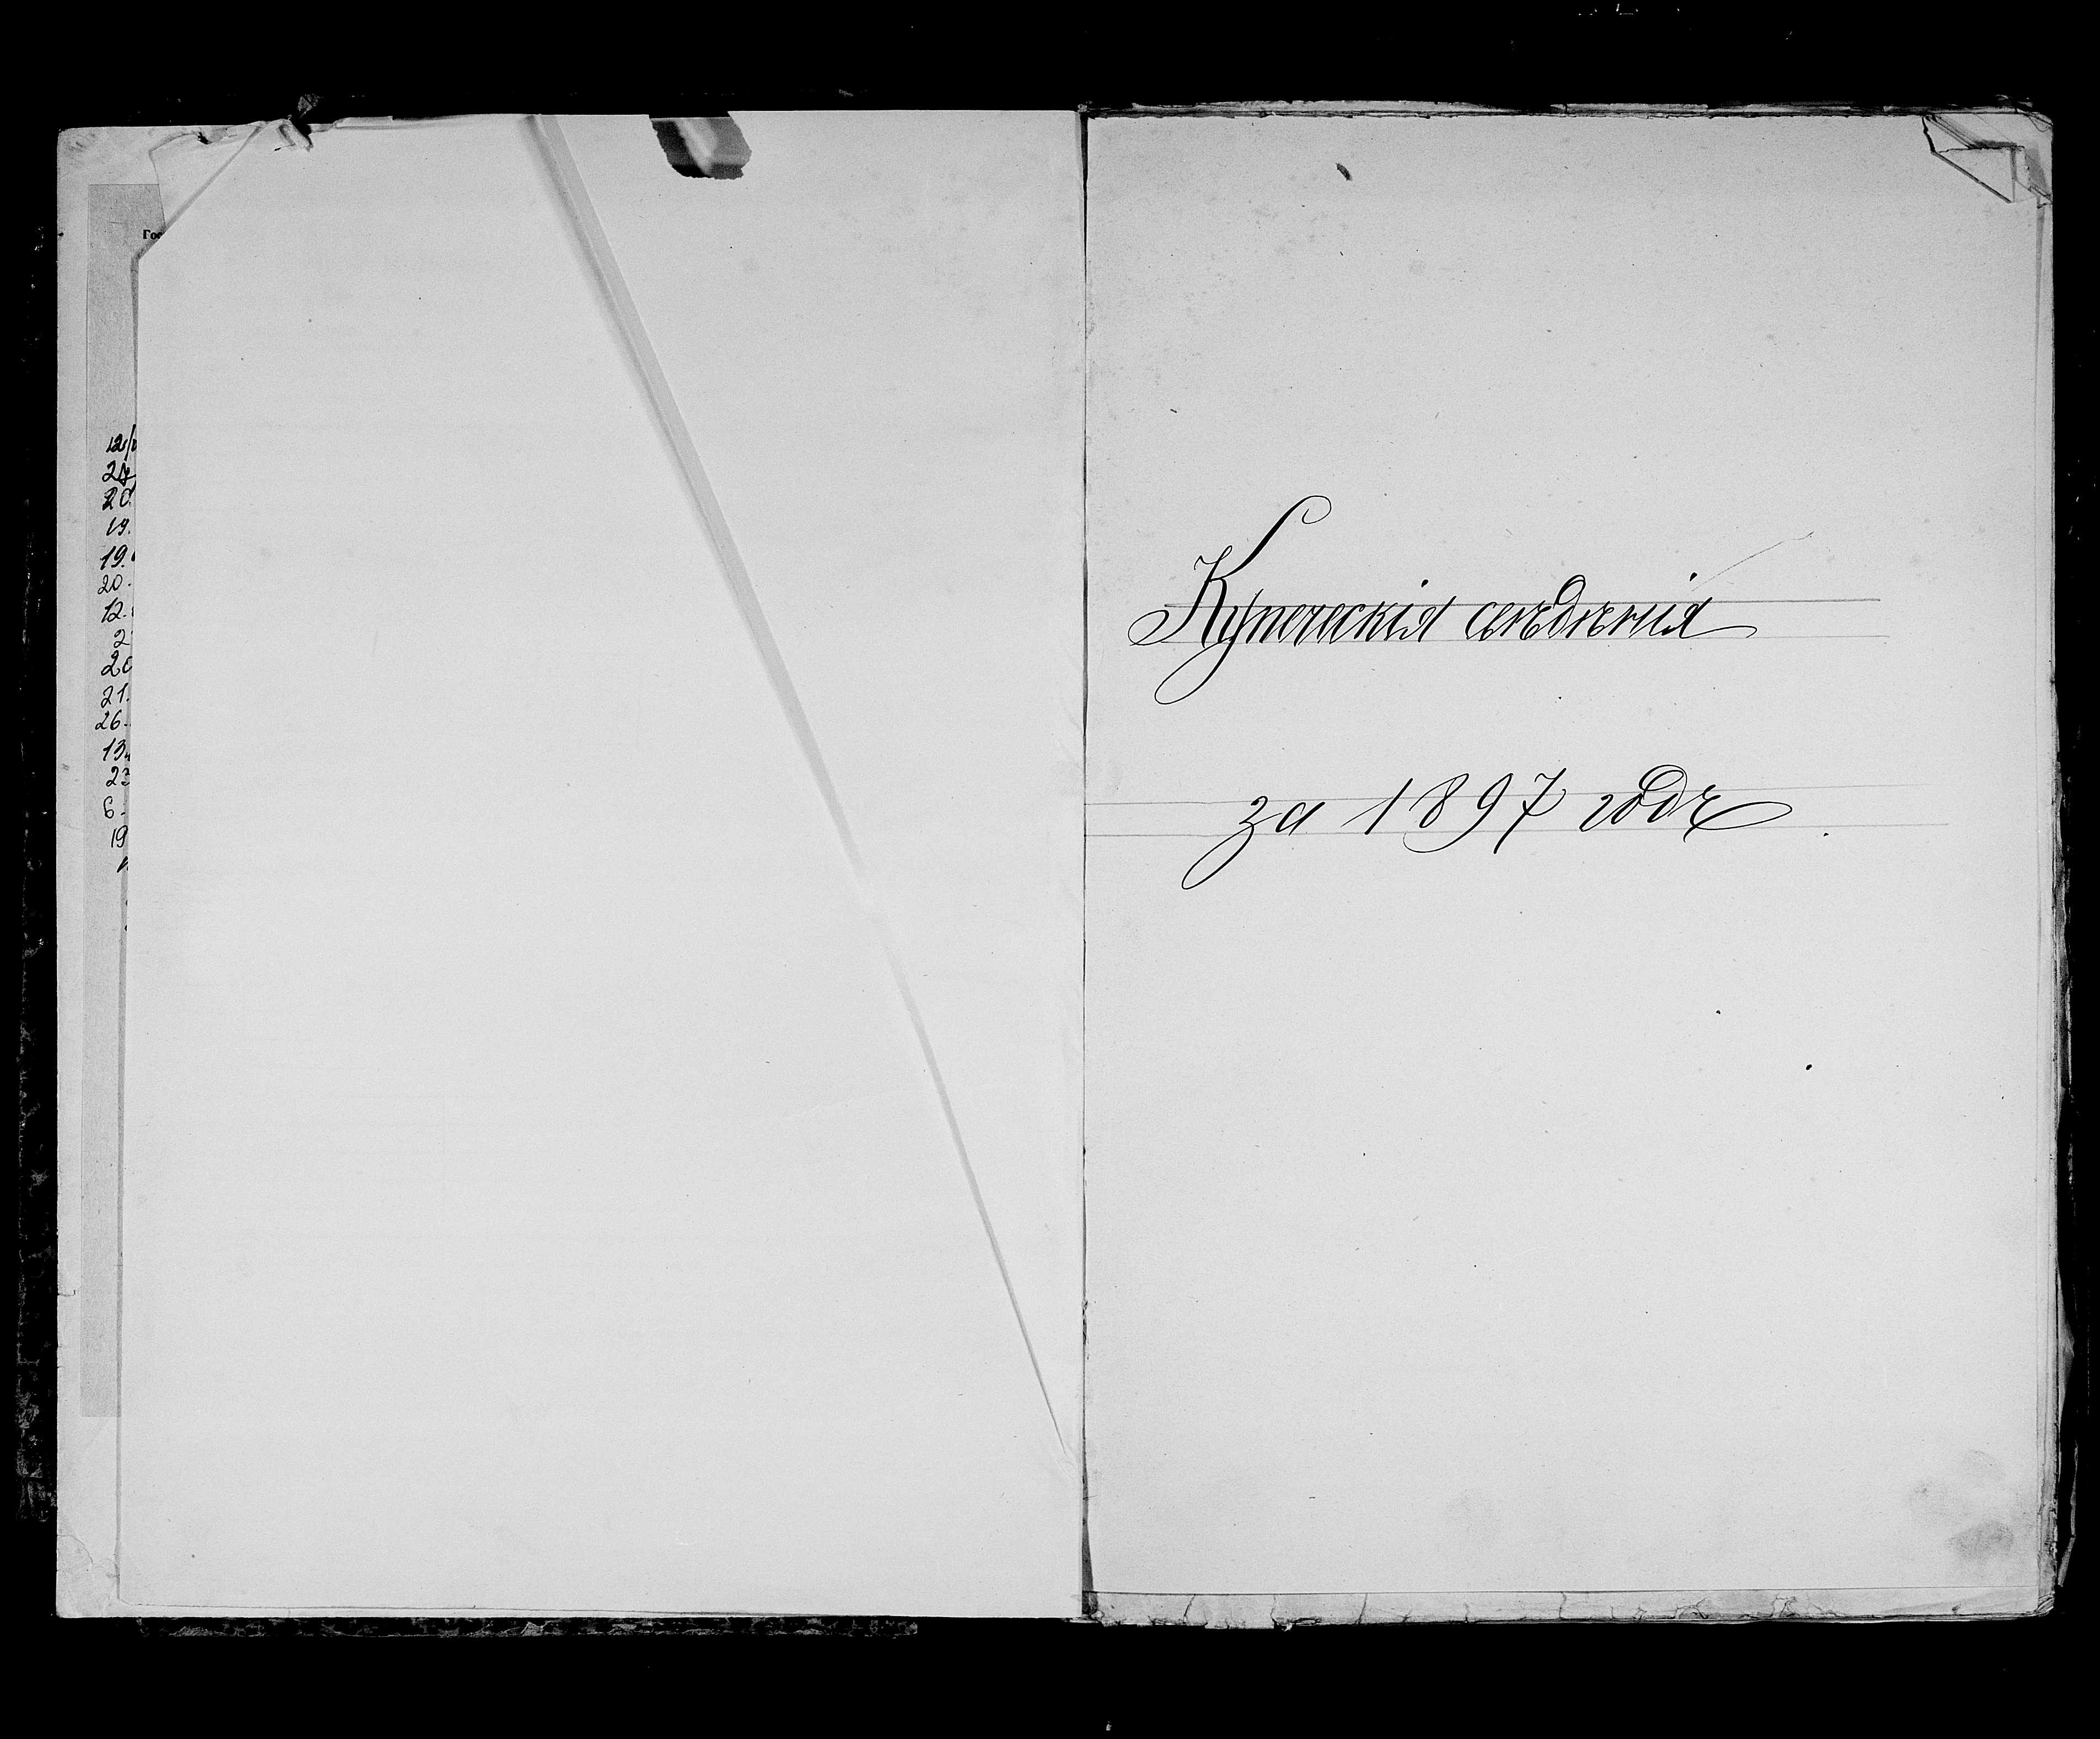 Гос
12/
24
20
19.
19.
20.
12.
2
20
21.
26.
13.
23
6.
19
Купеческія свѣдѣнія
за 1897 годъ.